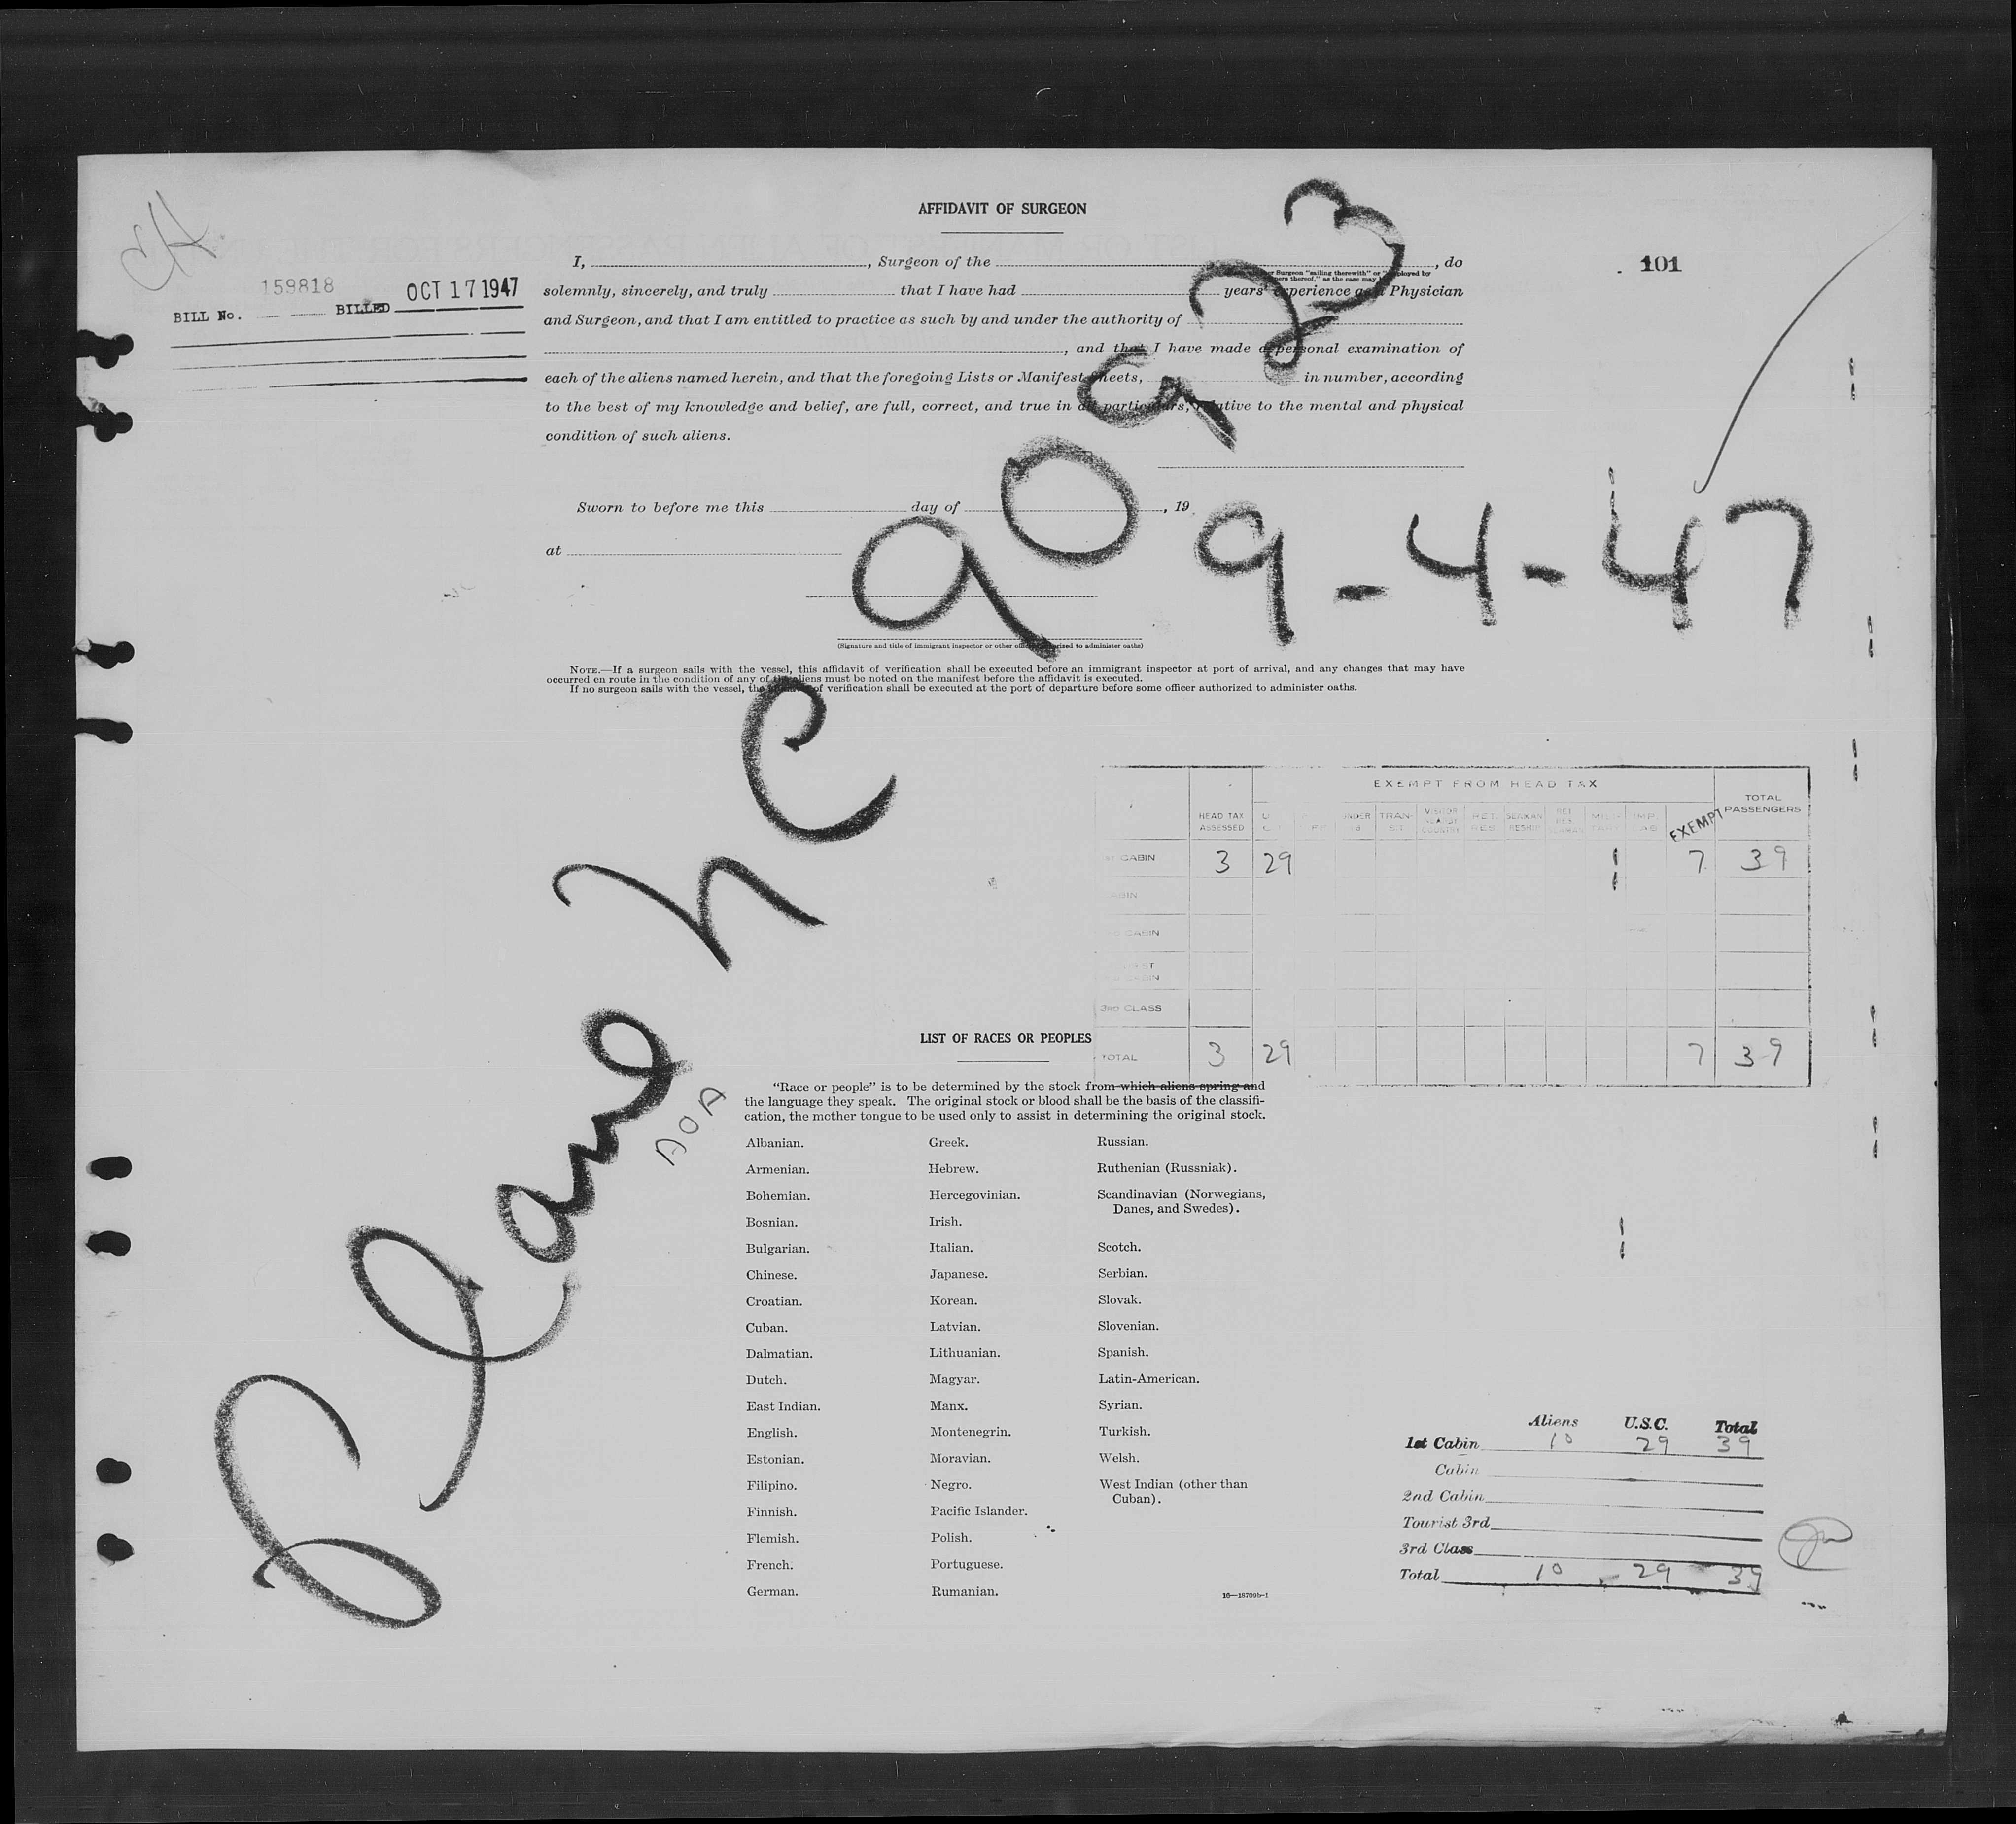 AFFIDAVIT OF SURGEON
101
I, , Surgeon of the , do
solemnly, sincerely, and truly that I have had years' experience as a Physician
and Surgeon, and that I am entitled to practice as such by and under the authority of
, and that I have made a personal examination of
each of the aliens named herein, and that the foregoing Lists or Manifest Sheets, in number, according
to the best of my knowledge and belief, are full, correct, and true in all particulars, relative to the mental and physical
condition of such aliens.
159818
BILL No. BILLED OCT 17 1947
Sworn to before me this day of , 19
at
(Signature and title of immigrant inspector or other officer authorized to administer oaths)
Plane NC 90923
9-4-47
AOA
NOTE.—If a surgeon sails with the vessel, this affidavit of verification shall be executed before an immigrant inspector at port of arrival, and any changes that may have
occurred en route in the condition of any of the aliens must be noted on the manifest before the affidavit is executed.
If no surgeon sails with the vessel, the affidavit of verification shall be executed at the port of departure before some officer authorized to administer oaths.
EXEMPT FROM HEAD TAX
HEAD TAX ASSESSED
UNDER
TRAN-
EXEMPT
TOTAL PASSENGERS
CABIN 3 29 7 39
CABIN
3RD CLASS
TOTAL 3 29 7 39
LIST OF RACES OR PEOPLES
"Race or people" is to be determined by the stock from which aliens spring and
the language they speak. The original stock or blood shall be the basis of the classifi-
cation, the mother tongue to be used only to assist in determining the original stock.
Albanian. Greek. Russian.
Armenian. Hebrew. Ruthenian (Russniak).
Bohemian. Hercegovinian. Scandinavian (Norwegians,
Danes, and Swedes).
Bosnian. Irish.
Bulgarian. Italian. Scotch.
Chinese. Japanese. Serbian.
Croatian. Korean. Slovak.
Cuban. Latvian. Slovenian.
Dalmatian. Lithuanian. Spanish.
Dutch. Magyar. Latin-American.
East Indian. Manx. Syrian.
English. Montenegrin. Turkish.
Estonian. Moravian. Welsh.
Filipino. Negro. West Indian (other than
Cuban).
Finnish. Pacific Islander.
Flemish. Polish.
French. Portuguese.
German. Rumanian.
16—18709b-1
Aliens U.S.C. Total
1st Cabin 10 29 39
Cabin
2nd Cabin
Tourist 3rd
3rd Class
Total 10 29 39